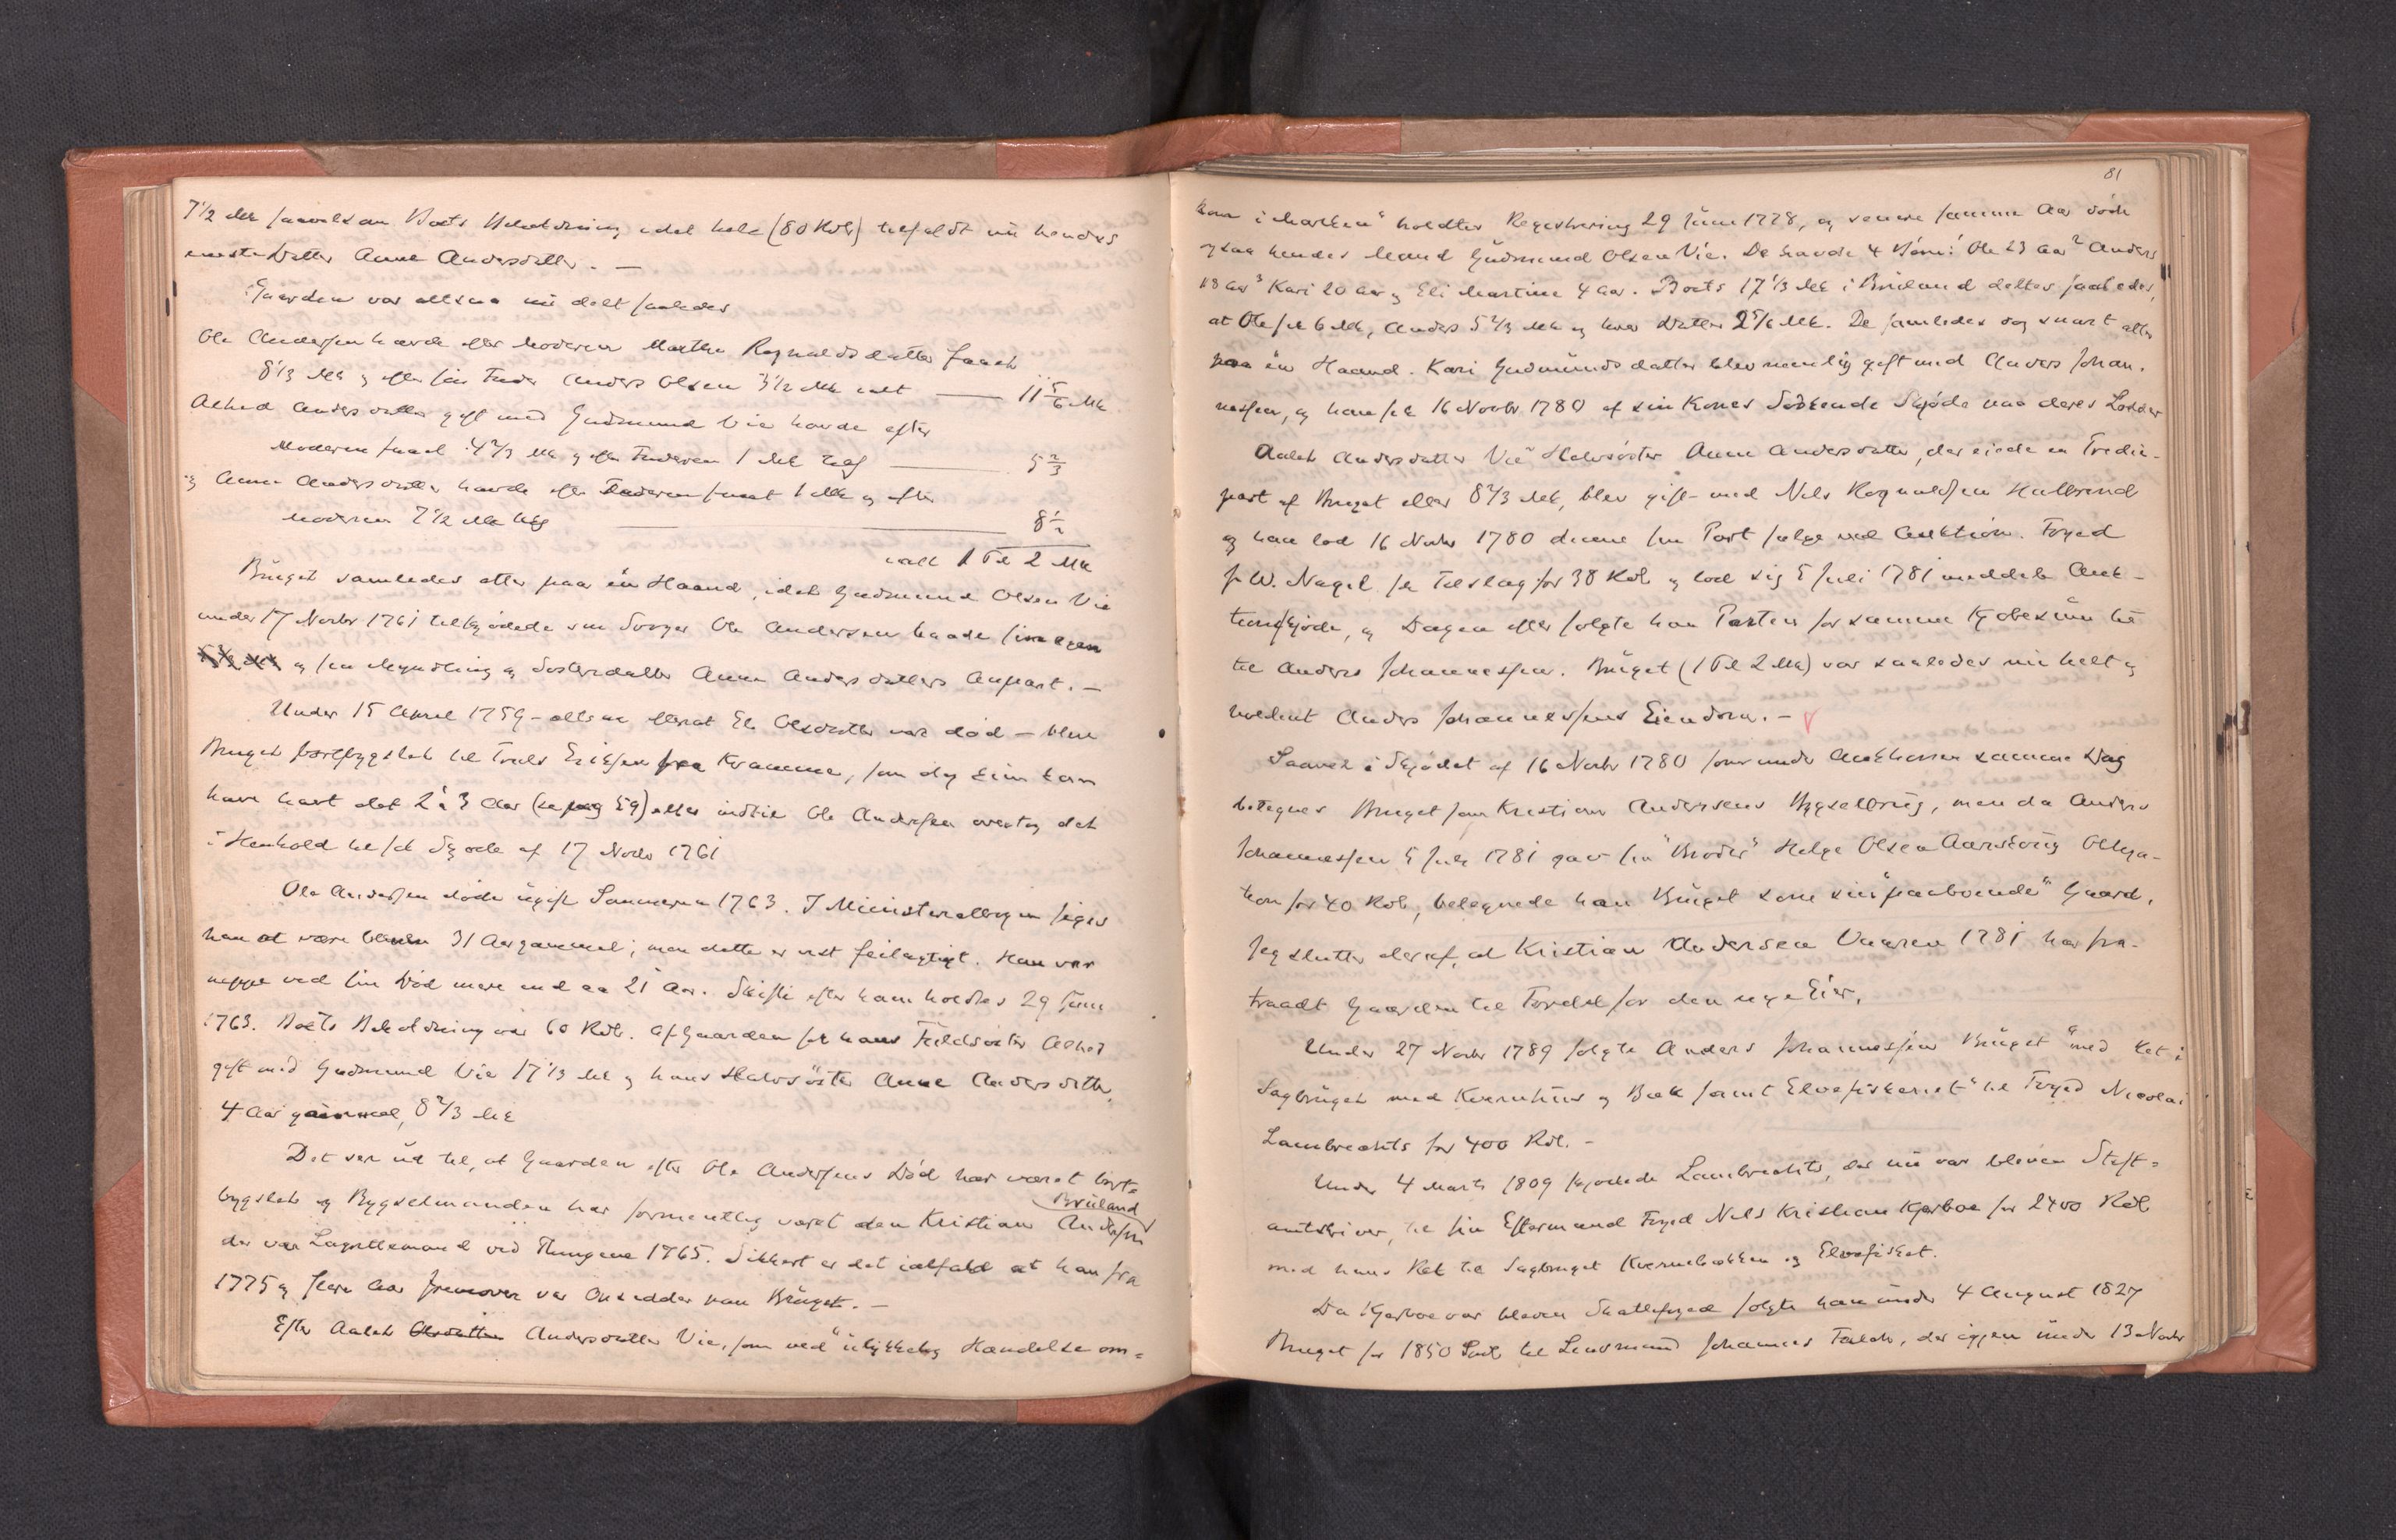 7 1/2 Mk saavelsom Boets Beholdning idet hele (80 Rdl) tilfaldt nu hendes
eneste Datter Anne Andersdatter. —
Gaarden var altsaa nu delt saaledes
Ole Andersen havde efter Moderen Marthe Ragnaldsdatter faaet
8 1/3 Mk og efter sin Fader Anders Olsen 3 1/2 Mk ialt — 11 5/6 Mk
Alhed Andersdatter gift med Gudmund Vie havde efter
Moderen faaet 4 2/3 Mk og efter Faderen 1 Mk tils — 5 2/3
og Anne Andersdatter havde efter Faderen faaet 1 Mk og efter
Moderen 7 1/2 Mk tils — 8 1/2
ialt 1 Pd 2 Mk
Bruget samledes atter paa én Haand, idet Gudmund Olsen Vie
under 17 Novbr 1761 tilskjødede sin Svoger Ole Andersen baade sin egen
og sin Myndling og Søsterdatter Anne Andersdatters Anpart. —
Under 15 April 1759 — altsaa efterat Eli Olsdatter var død — blev
Bruget bortbygslet til Truls Eriksen fra Kvamme, som dog kun kan
have havt det 2 à 3 Aar (se pag 59) eller indtil Ole Andersen overtog det
i Henhold til sit Skjøde af 17 Novbr 1761
Ole Andersen døde ugift Sommeren 1763. I Ministerialbogen siges
han at være bleven 31 Aar gammel; men dette er vist feilagtigt. Han var
neppe ved sin Død mere end ca 21 Aar. Skifte efter ham holdtes 29 Juni
1763. Boets Beholdning var 60 Rdl. Af Gaarden fik hans Fuldsøster Alhed
gift med Gudmund Vie 17 1/3 Mk og hans Halvsøster Anne Andersdatter,
4 Aar gammel, 8 2/3 Mk
Det ser ud til, at Gaarden efter Ole Andersens Død har været bort-
bygslet og Bygselmanden har formentlig været den Kristian Andersen Bruland
der var Lagrettesmand ved Thingene 1765. Sikkert er det ialfald at han fra
1775 og flere Aar fremover var Opsidder paa Bruget. —
Efter Aalet Olsdatter Andersdatter Vie, som ved "ulykkelig Hændelse om-
81
kom i Marken" holdtes Registrering 29 Juni 1778, og senere samme Aar døde
ogsaa hendes Mand Gudmund Olsen Vie. De havde 4 Børn: 1 Ole 23 Aar 2 Anders
18 Aar 3 Kari 20 Aar og Eli Martine 4 Aar. Boets 17 1/3 Mk i Bruland deltes saaledes,
at Ole fik 6 Mk, Anders 5 2/3 Mk og hver Datter 2 5/6 Mk. De samledes dog snart atter
paa én Haand. Kari Gudmundsdatter blev nemlig gift med Anders Johan-
nessen, og han fik 16 Novbr 1780 af sin Kones Søskende Skjøde paa deres Lodder
Aalet Andersdatter Vie's Halvsøster Anne Andersdatter, der eiede en Tredie-
part af Bruget eller 8 2/3 Mk, blev gift med Nels Ragnaldsen Halbrend
og han lod 16 Novbr 1780 denne sin Part sælge ved Auktion. Foged
J. W. Nagel fik Tilslag for 38 Rdl og lod sig 5 Juli 1781 meddele Auk-
tionsskjøde, og Dagen efter solgte han Parten for samme Kjøbesum til
til Anders Johannessen. Bruget (1 Pd 2 Mk) var saaledes nu helt og
holdent Anders Johannessens Eiendom. —
Saavel i Skjødet af 16 Novbr 1780 som under Auktionen samme Dag
betegnes Bruget som Kristian Andersens Bygselbrug, men da Anders
Johannessen 5 Juli 1781 gav sin "Broder" Helge Olsen Aarskoug Obliga-
tion for 40 Rdl, betegnede han Bruget som sin "paaboende" Gaard.
Jeg slutter deraf, at Kristian Andersen Vaaren 1781 har fra-
traadt Gaarden til Fordel for den nye Eier.
Under 27 Novbr 1789 solgte Anders Johannessen Bruget "med Ret i
Sagbruget med Kværnhus og Bæk samt Elvefiskeriet" til Foged Nicolai
Lambrechts for 400 Rdl. —
Under 4 Marts 1809 skjødede Lambrechts, der nu var bleven Stift-
amtskriver, til sin Eftermand Foged Nels Kristian Kjerboe for 2400 Rdl
med hans Ret til Sagbruget Kvernebækken og Elvefisket.
Da Kjerboe var bleven Skattefoged solgte han under 4 August 1827
Bruget for 1850 Spd til Lensmand Johannes Falch, der igjen under 13 Novbr